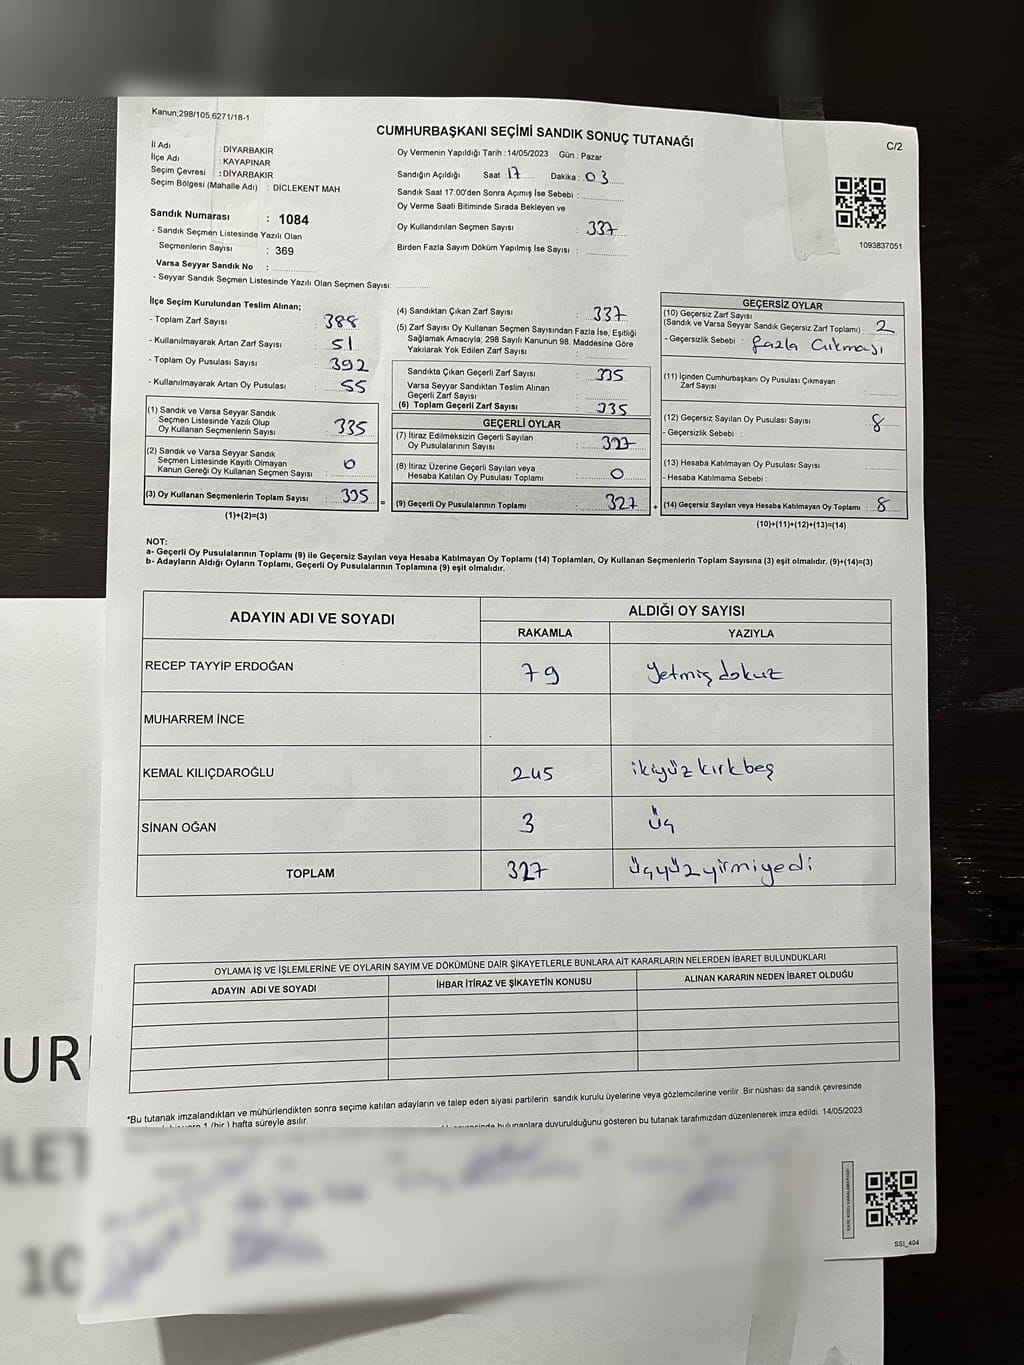 Kanun;298/105,6271/18-1
CUMHURBAŞKANI SEÇİMİ SANDIK SONUÇ TUTANAĞI
C/2
İl Adı : DİYARBAKIR
İlçe Adı : KAYAPINAR
Seçim Çevresi : DİYARBAKIR
Seçim Bölgesi (Mahalle Adı) : DİCLEKENT MAH.
Sandık Numarası : 1084
- Sandık Seçmen Listesinde Yazılı Olan
Seçmenlerin Sayısı : 369
Varsa Seyyar Sandık No :
- Seyyar Sandık Seçmen Listesinde Yazılı Olan Seçmen Sayısı:
Oy Vermenin Yapıldığı Tarih : 14/05/2023 Gün : Pazar
Sandığın Açıldığı Saat 17 Dakika : 03
Sandık Saat 17:00'den Sonra Açılmış İse Sebebi :
Oy Verme Saati Bitiminde Sırada Bekleyen ve
Oy Kullandırılan Seçmen Sayısı : 337
Birden Fazla Sayım Döküm Yapılmış İse Sayısı :
1093837051
İlçe Seçim Kurulundan Teslim Alınan;
- Toplam Zarf Sayısı : 388
- Kullanılmayarak Artan Zarf Sayısı : 51
- Toplam Oy Pusulası Sayısı : 392
- Kullanılmayarak Artan Oy Pusulası : 55
(1) Sandık ve Varsa Seyyar Sandık
Seçmen Listesinde Yazılı Olup
Oy Kullanan Seçmenlerin Sayısı : 335
(2) Sandık ve Varsa Seyyar Sandık
Seçmen Listesinde Kayıtlı Olmayan
Kanun Gereği Oy Kullanan Seçmen Sayısı : 0
(3) Oy Kullanan Seçmenlerin Toplam Sayısı : 335 =
(1)+(2)=(3)
(4) Sandıktan Çıkan Zarf Sayısı : 337
(5) Zarf Sayısı Oy Kullanan Seçmen Sayısından Fazla İse, Eşitliği
Sağlamak Amacıyla; 298 Sayılı Kanunun 98. Maddesine Göre
Yakılarak Yok Edilen Zarf Sayısı :
Sandıkta Çıkan Geçerli Zarf Sayısı : 335
Varsa Seyyar Sandıktan Teslim Alınan
Geçerli Zarf Sayısı :
(6) Toplam Geçerli Zarf Sayısı : 335
GEÇERLİ OYLAR
(7) İtiraz Edilmeksizin Geçerli Sayılan
Oy Pusulalarının Sayısı : 327
(8) İtiraz Üzerine Geçerli Sayılan veya
Hesaba Katılan Oy Pusulası Toplamı : 0
(9) Geçerli Oy Pusulalarının Toplamı : 327 +
GEÇERSİZ OYLAR
(10) Geçersiz Zarf Sayısı
(Sandık ve Varsa Seyyar Sandık Geçersiz Zarf Toplamı) : 2
- Geçersizlik Sebebi : fazla Çıkması
(11) İçinden Cumhurbaşkanı Oy Pusulası Çıkmayan
Zarf Sayısı :
(12) Geçersiz Sayılan Oy Pusulası Sayısı : 8
- Geçersizlik Sebebi :
(13) Hesaba Katılmayan Oy Pusulası Sayısı :
- Hesaba Katılmama Sebebi :
(14) Geçersiz Sayılan veya Hesaba Katılmayan Oy Toplamı : 8
(10)+(11)+(12)+(13)=(14)
NOT:
a- Geçerli Oy Pusulalarının Toplamı (9) ile Geçersiz Sayılan veya Hesaba Katılmayan Oy Toplamı (14) Toplamları, Oy Kullanan Seçmenlerin Toplam Sayısına (3) eşit olmalıdır. (9)+(14)=(3)
b- Adayların Aldığı Oyların Toplamı, Geçerli Oy Pusulalarının Toplamına (9) eşit olmalıdır.
ADAYIN ADI VE SOYADI ALDIĞI OY SAYISI
RAKAMLA YAZIYLA
RECEP TAYYİP ERDOĞAN 79 Yetmiş dokuz
MUHARREM İNCE
KEMAL KILIÇDAROĞLU 245 ikiyüz kırk beş
SİNAN OĞAN 3 üç
TOPLAM 327 üçyüz yirmi yedi
OYLAMA İŞ VE İŞLEMLERİNE VE OYLARIN SAYIM VE DÖKÜMÜNE DAİR ŞİKAYETLERLE BUNLARA AİT KARARLARIN NELERDEN İBARET BULUNDUKLARI
ADAYIN ADI VE SOYADI İHBAR İTİRAZ VE ŞİKAYETİN KONUSU ALINAN KARARIN NEDEN İBARET OLDUĞU
*Bu tutanak imzalandıktan ve mühürlendikten sonra seçime katılan adayların ve talep eden siyasi partilerin sandık kurulu üyelerine veya gözlemcilerine verilir. Bir nüshası da sandık çevresinde
1 (bir) hafta süreyle asılır.
bulunanlara duyurulduğunu gösteren bu tutanak tarafımızdan düzenlenerek imza edildi. 14/05/2023
UR
LET
10
SSI_404